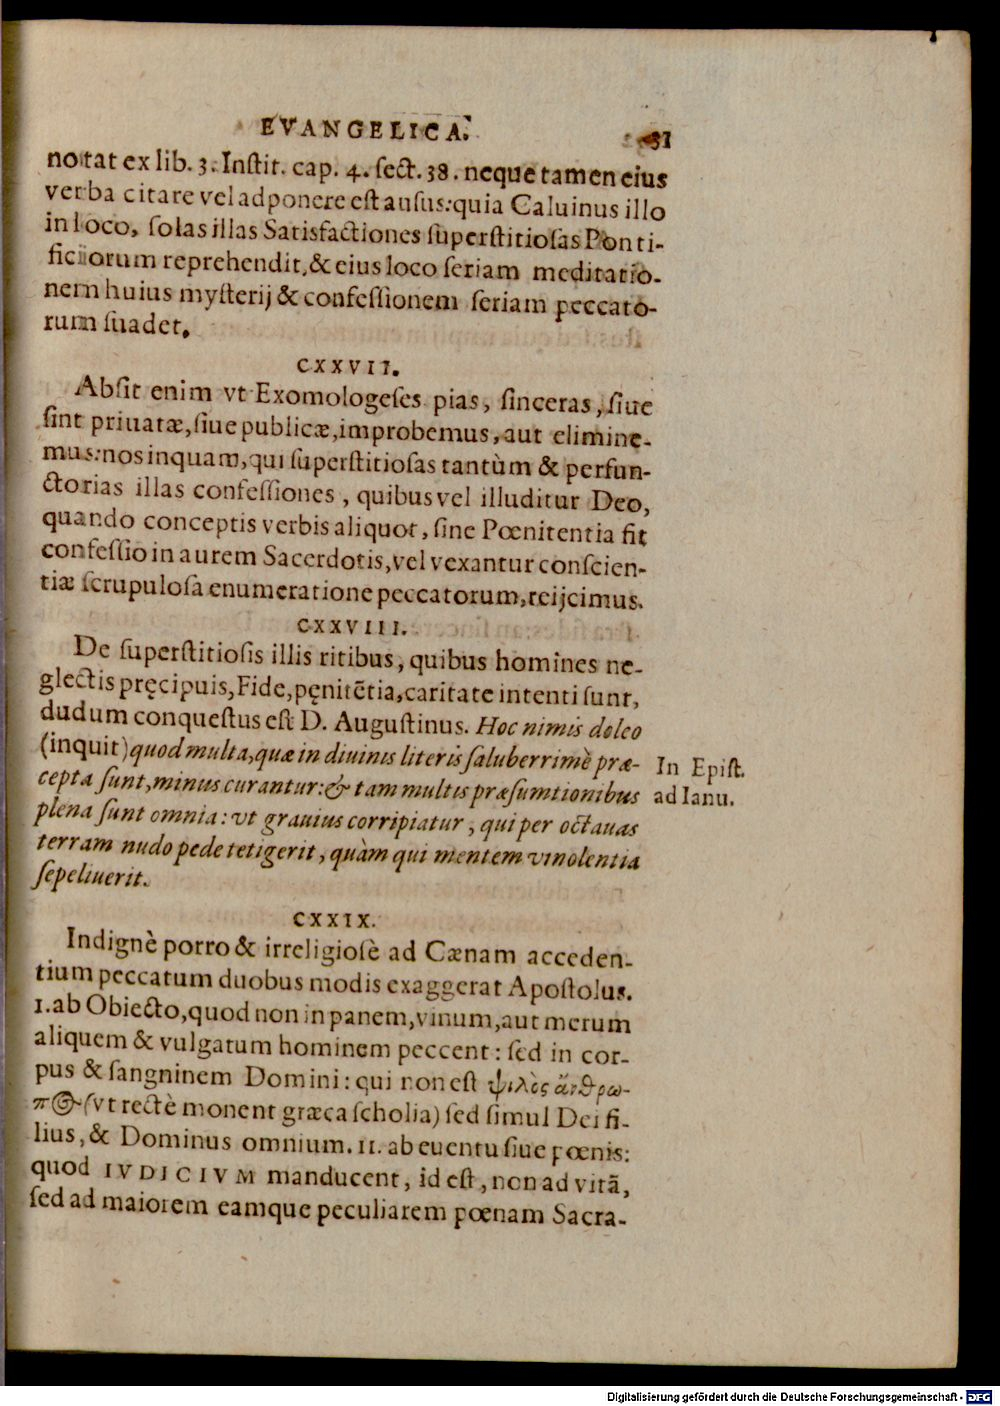 EVANGELICA. 31
notat ex lib. 3. Inſtit. cap. 4. ſect. 38. neque tamen eius
verba citare vel adponere eſt auſus: quia Caluinus illo
in loco, ſolas illas Satisfactiones ſuperſtitioſas Ponti-
ficiorum reprehendit, & eius loco ſeriam meditatio-
nem huius myſterij & confeſſionem ſeriam peccato-
rum ſuadet.
CXXVII.
Abſit enim vt Exomologeſes pias, ſinceras, ſiue
ſint priuatæ, ſiue publicæ, improbemus, aut elimine-
mus: nos inquam, qui ſuperſtitioſas tantùm & perfun-
ctorias illas confeſſiones, quibus vel illuditur Deo,
quando conceptis verbis aliquot, ſine Pœnitentia fit
confeſſio in aurem Sacerdotis, vel vexantur conſcien-
tiæ ſcrupuloſa enumeratione peccatorum, reijcimus.
CXXVIII.
De ſuperſtitioſis illis ritibus, quibus homines ne-
glectis pręcipuis, Fide, pęnitẽtia, caritate intenti ſunt,
dudum conqueſtus eſt D. Auguſtinus. Hoc nimis doleo
(inquit) quod multa, quæ in diuinis literis ſaluberrimè præ-
cepta ſunt, minus curantur: & tam multis præſumtionibus
plena ſunt omnia: vt grauius corripiatur, qui per octauas
terram nudo pede tetigerit, quàm qui mentem vinolentia
ſepeliuerit.
In Epiſt.
ad Ianu.
CXXIX.
Indignè porro & irreligioſè ad Cænam acceden-
tium peccatum duobus modis exaggerat Apoſtolus.
1. ab Obiecto, quod non in panem, vinum, aut merum
aliquem & vulgatum hominem peccent: ſed in cor-
pus & ſangninem Domini: qui non eſt ψιλὸς ἄνθρω-
πος (vt rectè monent græca ſcholia) ſed ſimul Dei fi-
lius, & Dominus omnium. 11. ab euentu ſiue pœnis:
quod IVDICIVM manducent, id eſt, non ad vitã,
ſed ad maiorem eamque peculiarem pœnam Sacra-
Digitalisierung gefördert durch die Deutsche Forschungsgemeinschaft - DFG